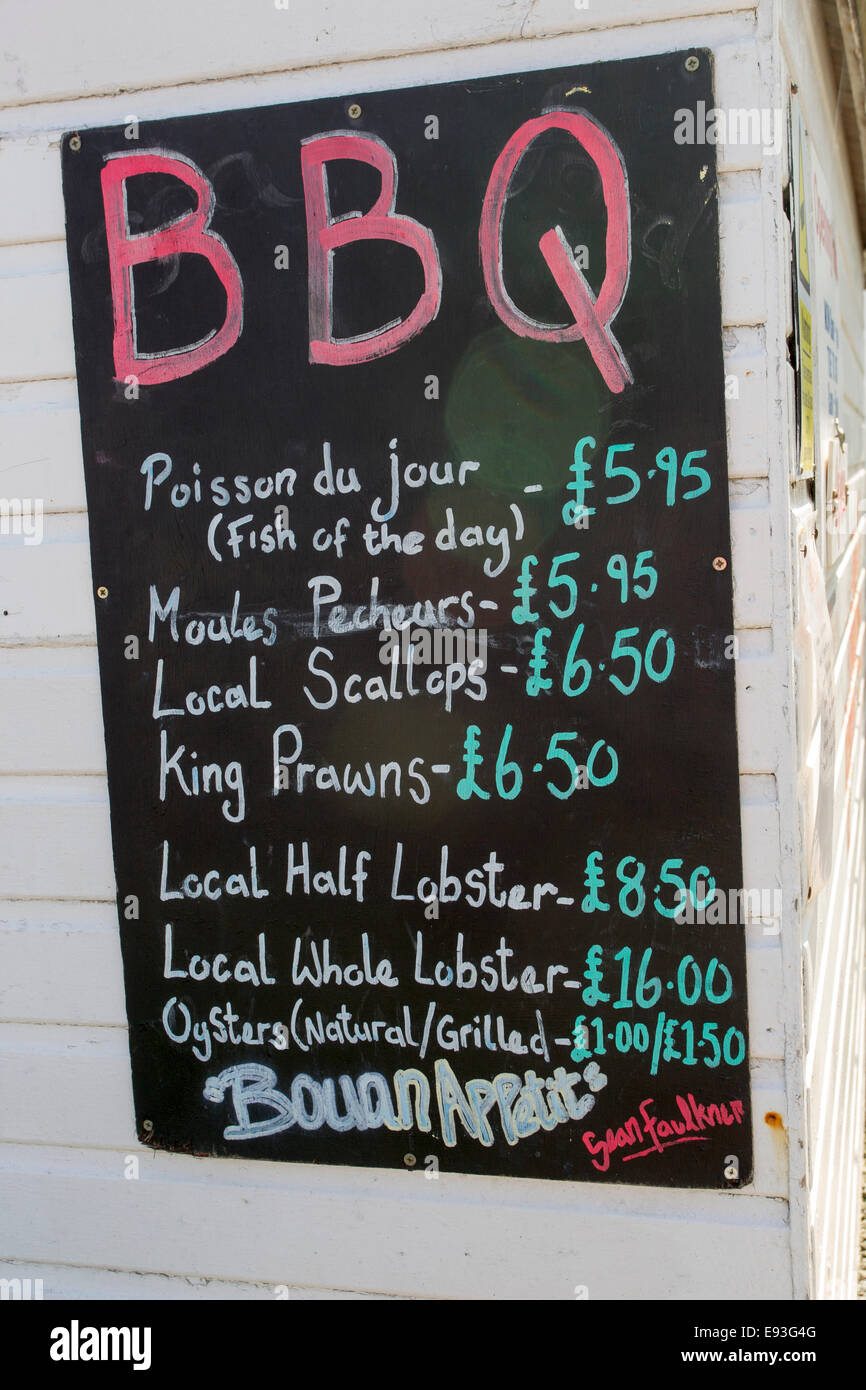 BBQ
Poisson du jour - £5.95
(Fish of the day)
Moules Pecheurs - £5.95
Local Scallops - £6.50
King Prawns - £6.50
Local Half Lobster - £8.50
Local Whole Lobster - £16.00
Oysters (Natural/Grilled - £1.00/£1.50
"Bouan Appetit"
Sean Faulkner
alamy
Image ID: E93G4G
www.alamy.com